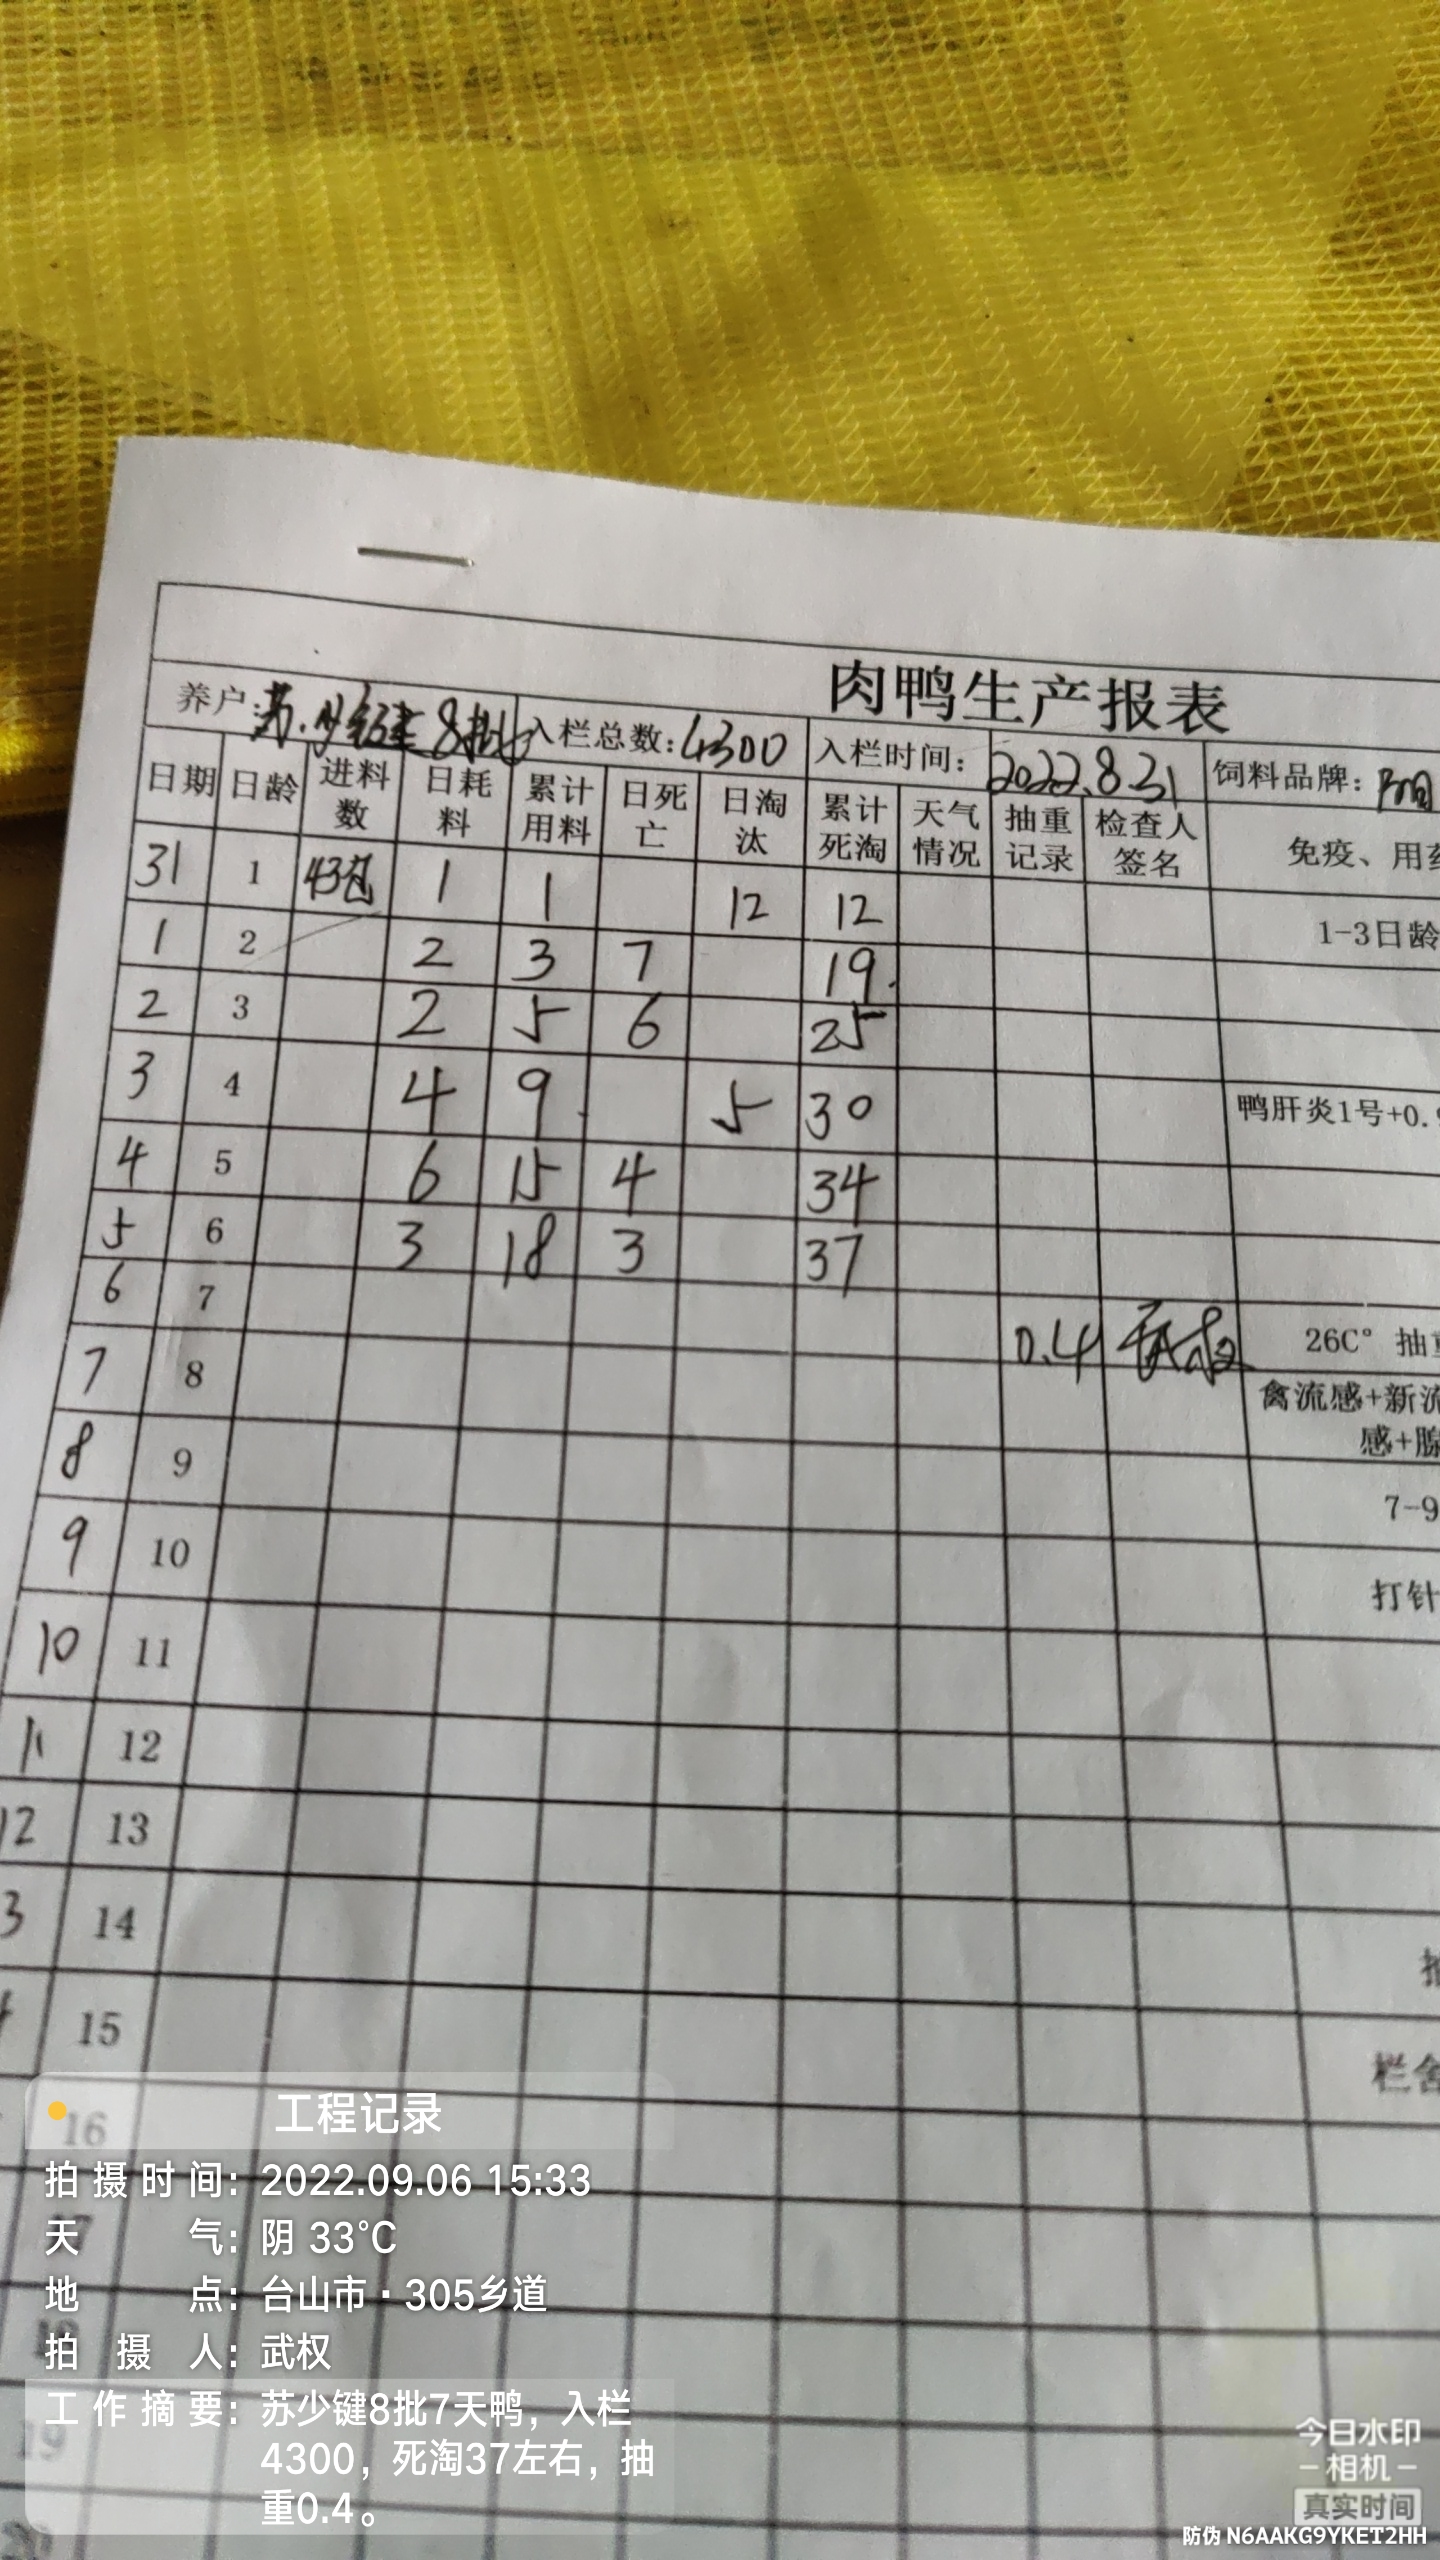 肉鸭生产报表
养户: 苏少键 8批 入栏总数: 4300 入栏时间: 2022.8.31 饲料品牌:
日期 日龄 进料数 日耗料 累计用料 日死亡 日淘汰 累计死淘 天气情况 抽重记录 检查人签名 免疫、用药
31 1 43包 1 1 12 12 1-3日龄
1 2 2 3 7 19
2 3 2 5 6 25
3 4 4 9 5 30 鸭肝炎1号+0.9
4 5 6 15 4 34
5 6 3 18 3 37
6 7 0.4 武权 26C° 抽重
7 8 禽流感+新流
感+腺
8 9 7-9
9 10 打针
10 11
11 12
12 13
3 14
15 栏舍
16
工程记录
拍摄时间: 2022.09.06 15:33
天气: 阴 33°C
地点: 台山市·305乡道
拍摄人: 武权
工作摘要: 苏少键8批7天鸭，入栏
4300，死淘37左右，抽
重0.4。
19
今日水印
相机
真实时间
防伪 N6AAKG9YKET2HH